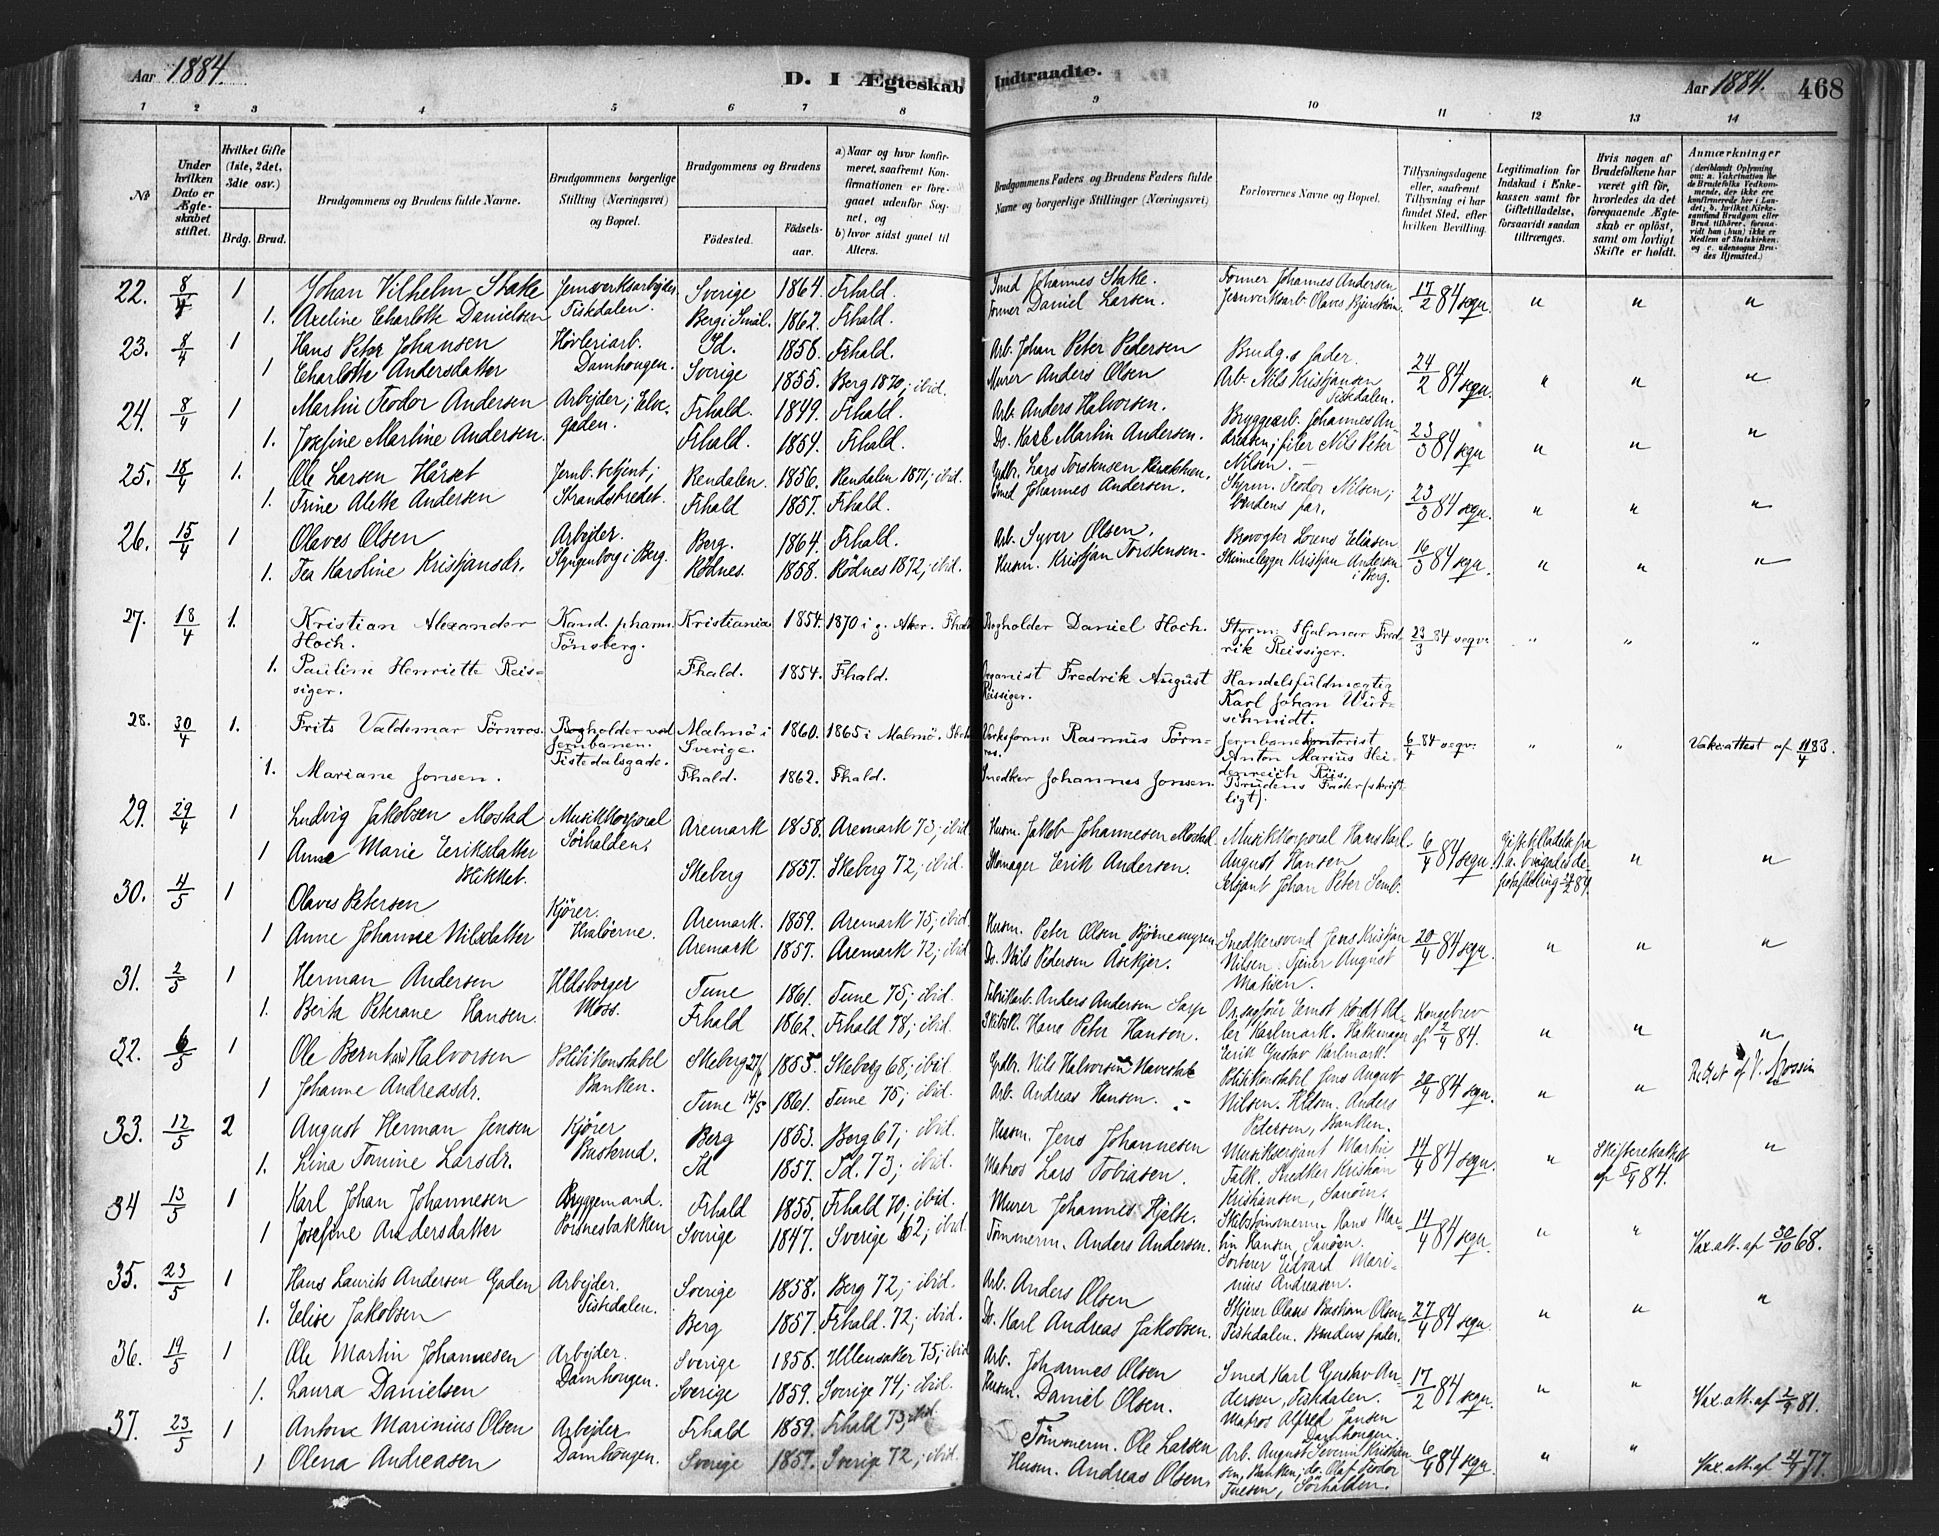 Aar 1884.
D. I Ægteskab Indtraadte.
Aar 1884. 468
1 2 3 4 5 6 7 8 9 10 11 12 13 14
No
Under hvilken Dato er Ægteskabet stiftet.
Hvilket Gifte (1ste, 2det, 3die osv.)
Brdg. Brud.
Brudgommens og Brudens fulde Navne.
Brudgommens borgerlige Stilling (Næringsvei) og Bopæl.
Brudgommens og Brudens
Fødested.
Fødselsaar.
a) Naar og hvor konfirmeret, saafremt Konfirmationen er foregaaet udenfor Sognet, og
b) hvor sidst gaaet til Alters.
Brudgommens Faders og Brudens Faders fulde Navne og borgerlige Stillinger (Næringsvei)
Forlovernes Navne og Bopæl.
Tillysningsdagene eller, saafremt Tillysning ei har fundet Sted, efter hvilken Bevilling.
Legitimation for Indskud i Enkekassen samt for Giftetilladelse, forsaavidt saadan tiltrænges.
Hvis nogen af Brudefolkene har været gift før, hvorledes da det foregaaende Ægteskab er opløst, samt om lovligt Skifte er holdt.
Anmærkninger
22. 8/4 1 Johan Vilhelm Stake Jernverksarbejder Sverige 1864. Frhald. Smed Johannes Stake. Former Johannes Andersen 17/2 84 segv. " " "
1. Axeline Charlotte Danielsen Tistedalen. Berg i Smål. 1862. Frhald. Former Daniel Larsen. Jernverksarb. Olaves
23. 8/4 1 Hans Peter Johansen Høvleriarb. Id. 1858. Frhald. Arb. Johan Peter Pedersen Brudg.s fader. 24/2 84 segv. " " "
1 Charlotte Andersdatter Damhougen. Sverige 1855. Berg 1870; ibid. Murer Anders Olsen Arb. Nils Kristjansen Tistedalen.
24. 8/4 1 Martin Teodor Andersen Arbejder; Elve- Frhald. 1849. Frhald. Arb. Anders Halvorsen. Bryggearb. Johannes An- 23/3 84 segv. " " "
1. Josefine Martine Andersen. gaden. Frhald. 1854. Frhald. Do. Karl Martin Andersen. dreasen; filer Nils Peter Nilsen.
25. 18/4 1. Ole Larsen Håret Jernb.betjent; Rendalen. 1856. Rendalen 1871; ibid. Gdbr. Lars Torstensen Styrm. Teodor Nilsen; 23/3 84 segv. " " "
1. Trine Alette Andersen Strandstredet. Frhald 1857. Frhald. Smed Johannes Andersen. brudens far.
26. 15/4 1 Olaves Olsen Arbejder. Berg. 1864. Frhald. Arb. Syver Olsen. Brovogter Lorens Eliasen 16/3 84 segv. " " "
1. Tea Karoline Kristjansdr. i Berg. Rødnes. 1858. Rødnes 1872; ibid. Husm. Kristjan Torstensen. Skinnelegger Kristjan Andersen i Berg.
27. 18/4 1. Kristian Alexander Kand. pharm. Kristiania 1854. 1870 i g. Aker. Fhald Bogholder Daniel Hoch. Styrm. Hjalmar Fred- 23/3 84 segv. " " "
Hoch. Tønsberg. rik Reissiger.
1. Pauline Henriette Reis- Fhald. 1854. Fhald. Organist Fredrik August Handelsfuldmægtig
siger. Reissiger. Karl Johan Wür-
schmidt.
28. 30/4 1. Frits Valdemar Törnros. Bogholder ved Malmö i 1860. 1865 i Malmö. Rasmus Törn- Jernbanekontorist 6/4 84 segv. " " Vak.attest af 11/4 83.
Jernbanen. Sverige. ros. Anton Marius Hei-
Tistedalsgade. denreich Riis.
1. Mariane Jonsen. Fhald. 1862. Fhald. Snedker Johannes Jonsen. Brudens Fader (skrift-
ligt).
29. 29/4 1 Ludvig Jakobsen Mostad Musikkorporal Aremark 1858. Aremark 73; ibid. Husm. Jakob Johannesen Mostad. Musikkorporal Hans Karl 6/4 84 segv. Giftetilladelse fra " "
1 Anne Marie Eriksdatter Sørhalden. Skeberg 1857. Skeberg 72; ibid. Skomager Erik Andersen. August Hansen
Sersjant Johan Peter
30. 4/5 1 Olaves Petersen Kjører. Aremark. 1859. Aremark 75; ibid. Husm. Peter Olsen Bjørnemyren Snedkersvend Jens Kristjan 20/4 84 segv. " " "
1 Anne Johanne Nilsdatter Hvaløerne. Aremark 1857. Aremark 72; ibid Do. Nils Pedersen Åsekjer. Nilsen. Tjener August Matisen.
31. 2/5 1 Herman Andersen Ildsborger Tune 1861. Tune 75; ibid. Fabrikarb. Anders Andersen Sarp Kongebrev " " "
1. Berta Petrane Hansen. Moss. Frhald 1862. Frhald 78; ibid. Skibsk. Hans Peter Hansen. ler Karlmark. Erik Gustav Karlmark. af 2/4 84.
32. 6/5 1 Ole Bernhard Halvorsen Politikonstabel Skeberg 27/1 1855 Skeberg 68; ibid. Gdbr. Nils Halvorsen Politikonstabel Jens August 20/4 84 segv. " "
1 Johanne Andreasdr. Banken. Tune 14/5 1861. Tune 75; ibid. Arb. Andreas Hansen. Nilsen. Anders Pedersen, Banken.
33. 12/5 2 August Herman Jensen Kjører Berg 1853. Berg 67; ibid. Husm. Jens Johannesen Musiksersjant Martin 14/4 84 segv. " Skifteretsattest "
1. Lina Tomine Larsdr. Busterud. Id 1857. Id. 73; ibid. Matros Lars Tobiasen. Falk. Snedker Kristian Kristiansen, Sauøen. af 5/4 84.
34 13/5 1 Karl Johan Johannesen Bryggemand. Frhald 1855. Frhald 70; ibid. Murer Johannes Hjelte. Skibstømmerm. Hans Mar- 14/4 84 segv. " " Vax.att. af 30/10 68.
1 Josefine Andersdatter Sverige 1847. Sverige 62; ibid Tømmerm. Anders Andersen. tin Hansen, Sauøen. Sorterer Edvard Mari-
nius Andreasen.
35. 23/5 1 Hans Laurits Andersen Gaden Arbejder. Sverige 1858. Berg 72; ibid. Arb. Anders Olsen 27/4 84 segv. " " "
1. Elise Jakobsen Tistedalen. Berg 1857. Frhald. 72; ibid. Do. Karl Andreas Jakobsen. Tistedalen. Brudens fader.
36. 19/5 1 Ole Martin Johannesen Arbejder. Sverige 1858. Ullensaker 75; ibid Arb. Johannes Olsen Smed Karl Gustav An- 17/2 84 segv. " " Vax.att. af 2/7 81.
1. Laura Danielsen Damhougen. Sverige 1859. Sverige 74; ibid. Husm. Daniel Olsen. dersen, Tistedalen. Matros Alfred Jansen Damhougen.
37. 23/5 1 Antone Marinius Olsen Arbejder Frhald 1859. Frhald 73; ibid Tømmerm. Ole Larsen Arb. August Severin Kristian- 6/4 84 segv. " "
1 Olena Andreasen Damhougen. Sverige 1857. Sverige 72; ibid. Husm. Andreas Olsen. sen, Banken; do. Olaf Teodor Iversen, Sørhalden.